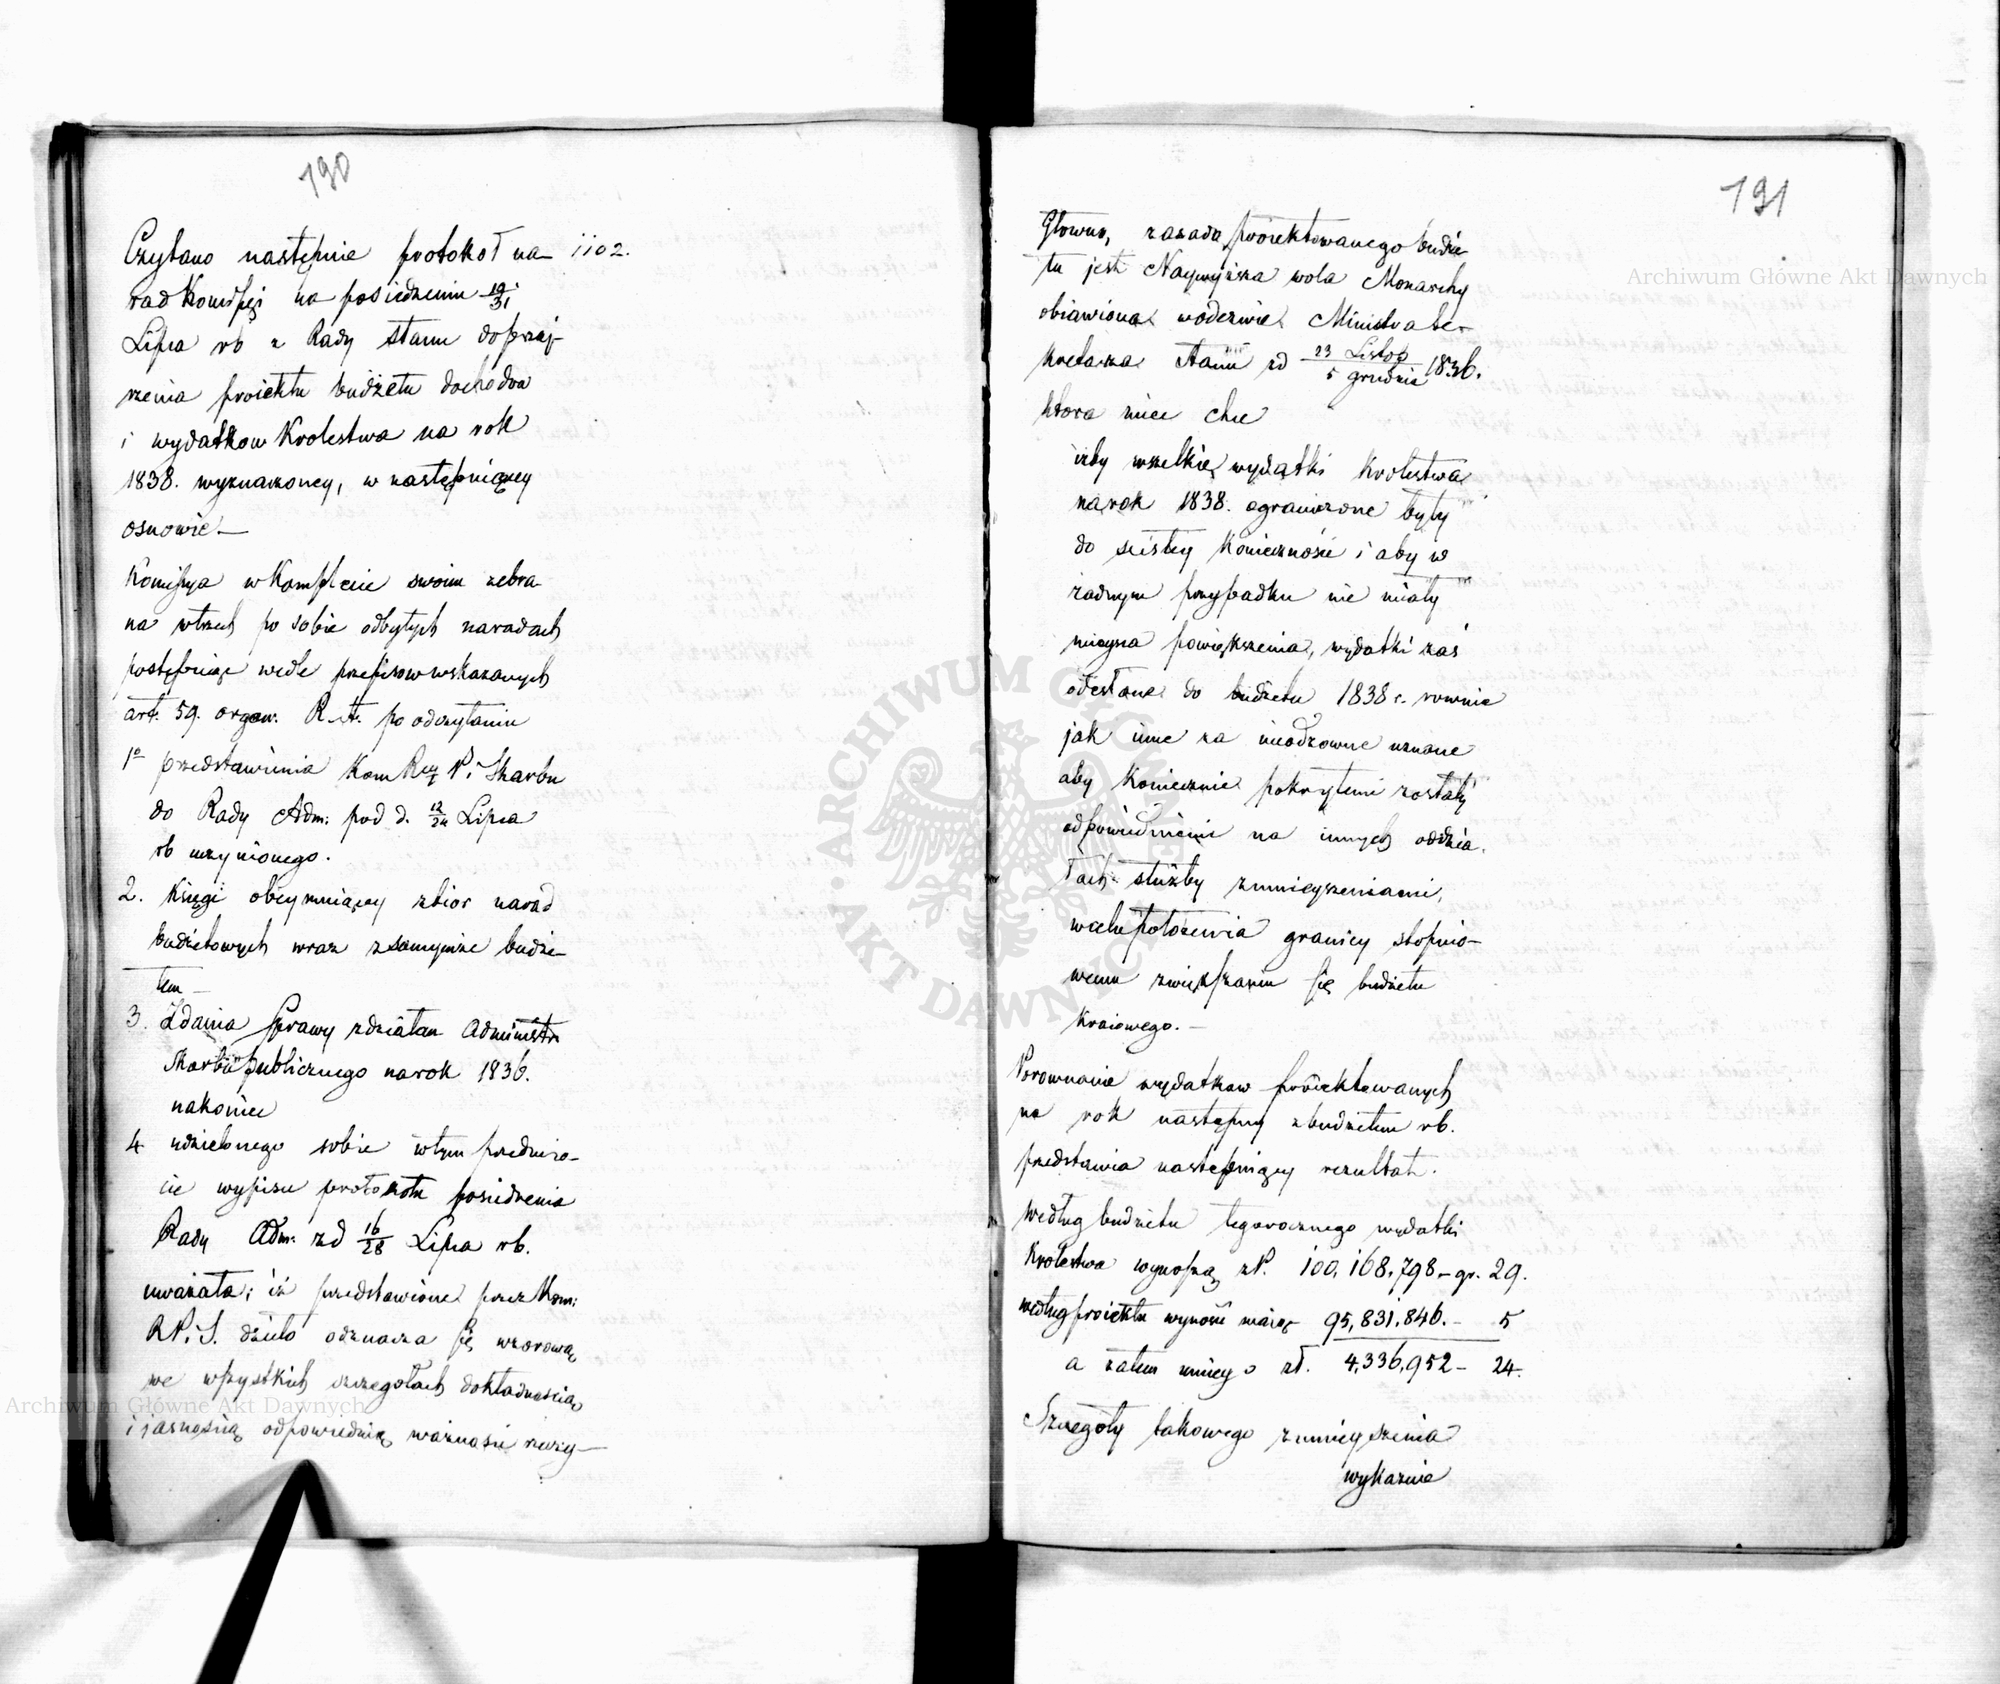 190
Czytano następnie protokół na- 1102.
rad Komissyi na posiedzeniu 19/31
Lipca rb z Rady Stanu do przej-
rzenia proiektu budżetu dochodow
i wydatkow Krolestwa na rok
1838. wyznaczoney, w następuiącey
osnowie. —
Komissya w Komplecie swoim zebra-
na w trzech po sobie odbytych naradach
postępuiąc wedle przepisow wskazanych
art. 59. organ. R. St. po odczytaniu
1o przedstawienia Kom Rzą P. i Skarbu
do Rady Adm: pod d. 12/24 Lipca
rb uczynionego.
2. Księgi obeymuiącey zbior narad
budżetowych wraz z samymże budże-
tem —
3. Zdania Sprawy z działan Administr
Skarbu publicznego na rok 1836.
nakoniec
4 udzielonego sobie w tym przedmio-
cie wypisu protokołu posiedzenia
Rady Adm: z d 16/28 Lipca rb.
uważała; iż przedstawione przez Kom:
R P. i S. dzieło odznacza się wzorową
we wszystkich szczegołach dokładnością
i jasnością odpowiednią ważności rzeczy —
191
Głowną zasadą proiektowanego budże
tu jest Naywyższa wola Monarchy
obiawiona w odezwie Ministra Se-
kretarza Stanu z d 23 Listop/5 grudnia 1836.
ktora miec chce
iżby wszelkie wydatki Krolestwa
na rok 1838. ograniczone były
do scisłey Konieczności i aby w
żadnym przypadku nie miały
mieysca powiększenia, wydatki zaś
odesłane do budżetu 1838 r. rownie
jak inne za nieodzowne uznane
aby Koniecznie pokrytemi zostały
odpowiedniemi na innych oddzia-
łach służby zmnieyszeniami,
w celu położenia granicy stopnio-
wemu zwiększaniu się budżetu
Kraiowego. —
Porownanie wydatkow proiektowanych
na rok następny z budżetem rb.
przedstawia następuiący rezultat.
Według budżetu tegorocznego wydatki
Krolestwa wynoszą zP. 100,168,798 — gr. 29.
według proiektu wynosić maią 95,831,846. — 5
a zatem mniey o zł. 4,336,952 — 24.
Szczegoły takowego zmnieyszenia
wykazuie
Archiwum Główne Akt Dawnych
Archiwum Główne Akt Dawnych
ARCHIWUM GŁÓWNE
AKT DAWNYCH